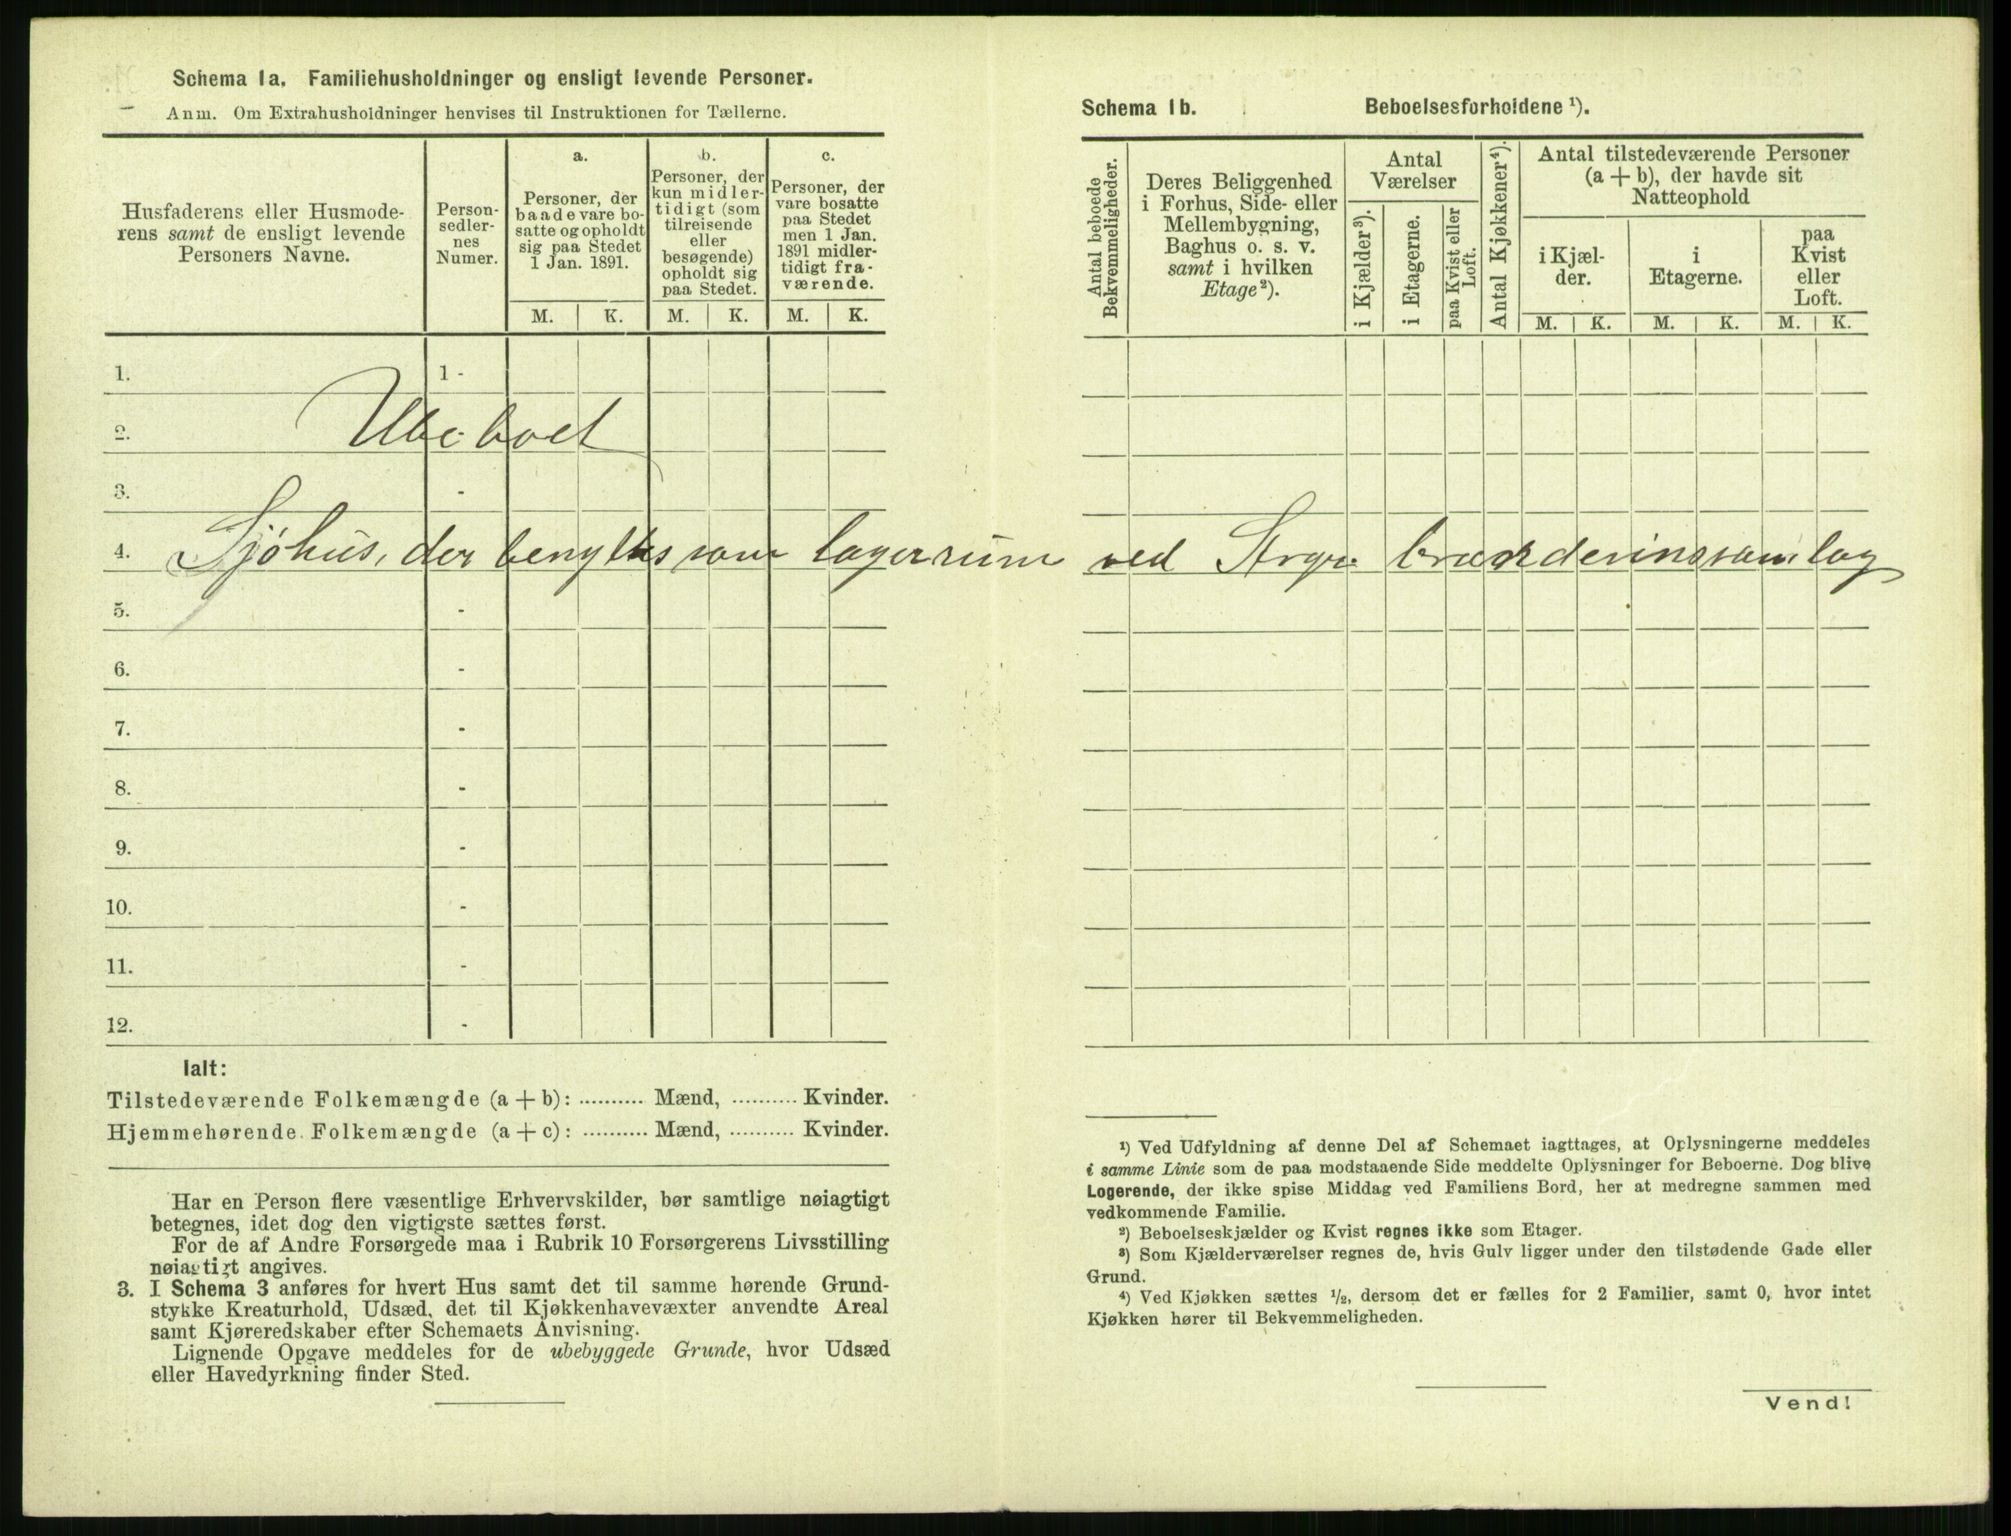 Schema 1a. Familiehusholdninger og ensligt levende Personer.
Anm. Om Extrahusholdninger henvises til Instruktionen for Tællerne.
Husfaderens eller Husmode-
rens samt de ensligt levende
Personers Navne.
Person-
sedler-
nes
Numer.
a.
Personer, der
baade vare bo-
satte og opholdt
sig paa Stedet
1 Jan. 1891.
b.
Personer, der
kun midler-
tidigt (som
tilreisende
eller
besøgende)
opholdt sig
paa Stedet.
c.
Personer, der
vare bosatte
paa Stedet
men 1 Jan.
1891 midler-
tidigt fra-
værende.
M. K. M. K. M. K.
1. 1 -
2. Ubeboet
3. -
4. Sjøhus, der benyttes som lagerrum ved brænderinssamlag
5. -
6. -
7. -
8. -
9. -
10. -
11. -
12. -
Ialt:
Tilstedeværende Folkemængde (a + b): .......... Mænd, .......... Kvinder.
Hjemmehørende Folkemængde (a + c): .......... Mænd, .......... Kvinder.
Har en Person flere væsentlige Erhvervskilder, bør samtlige nøiagtigt
betegnes, idet dog den vigtigste sættes først.
For de af Andre Forsørgede maa i Rubrik 10 Forsørgerens Livsstilling
nøiagtigt angives.
3. I Schema 3 anføres for hvert Hus samt det til samme hørende Grund-
stykke Kreaturhold, Udsæd, det til Kjøkkenhavevæxter anvendte Areal
samt Kjøreredskaber efter Schemaets Anvisning.
Lignende Opgave meddeles for de ubebyggede Grunde, hvor Udsæd
eller Havedyrkning finder Sted.
Schema 1b. Beboelsesforholdene ¹).
Antal beboede
Bekvemmeligheder.
Deres Beliggenhed
i Forhus, Side- eller
Mellembygning,
Baghus o. s. v.
samt i hvilken
Etage²).
Antal
Værelser
i Kjælder³).
i Etagerne.
paa Kvist eller
Loft.
Antal Kjøkkener⁴).
Antal tilstedeværende Personer
(a + b), der havde sit
Natteophold
i Kjæl-
der.
i
Etagerne.
paa
Kvist
eller
Loft.
M. K. M. K. M. K.
¹) Ved Udfyldning af denne Del af Schemaet iagttages, at Oplysningerne meddeles
i samme Linie som de paa modstaaende Side meddelte Oplysninger for Beboerne. Dog blive
Logerende, der ikke spise Middag ved Familiens Bord, her at medregne sammen med
vedkommende Familie.
²) Beboelseskjælder og Kvist regnes ikke som Etager.
³) Som Kjælderværelser regnes de, hvis Gulv ligger under den tilstødende Gade eller
Grund.
⁴) Ved Kjøkken sættes ½, dersom det er fælles for 2 Familier, samt 0, hvor intet
Kjøkken hører til Bekvemmeligheden.
Vend!